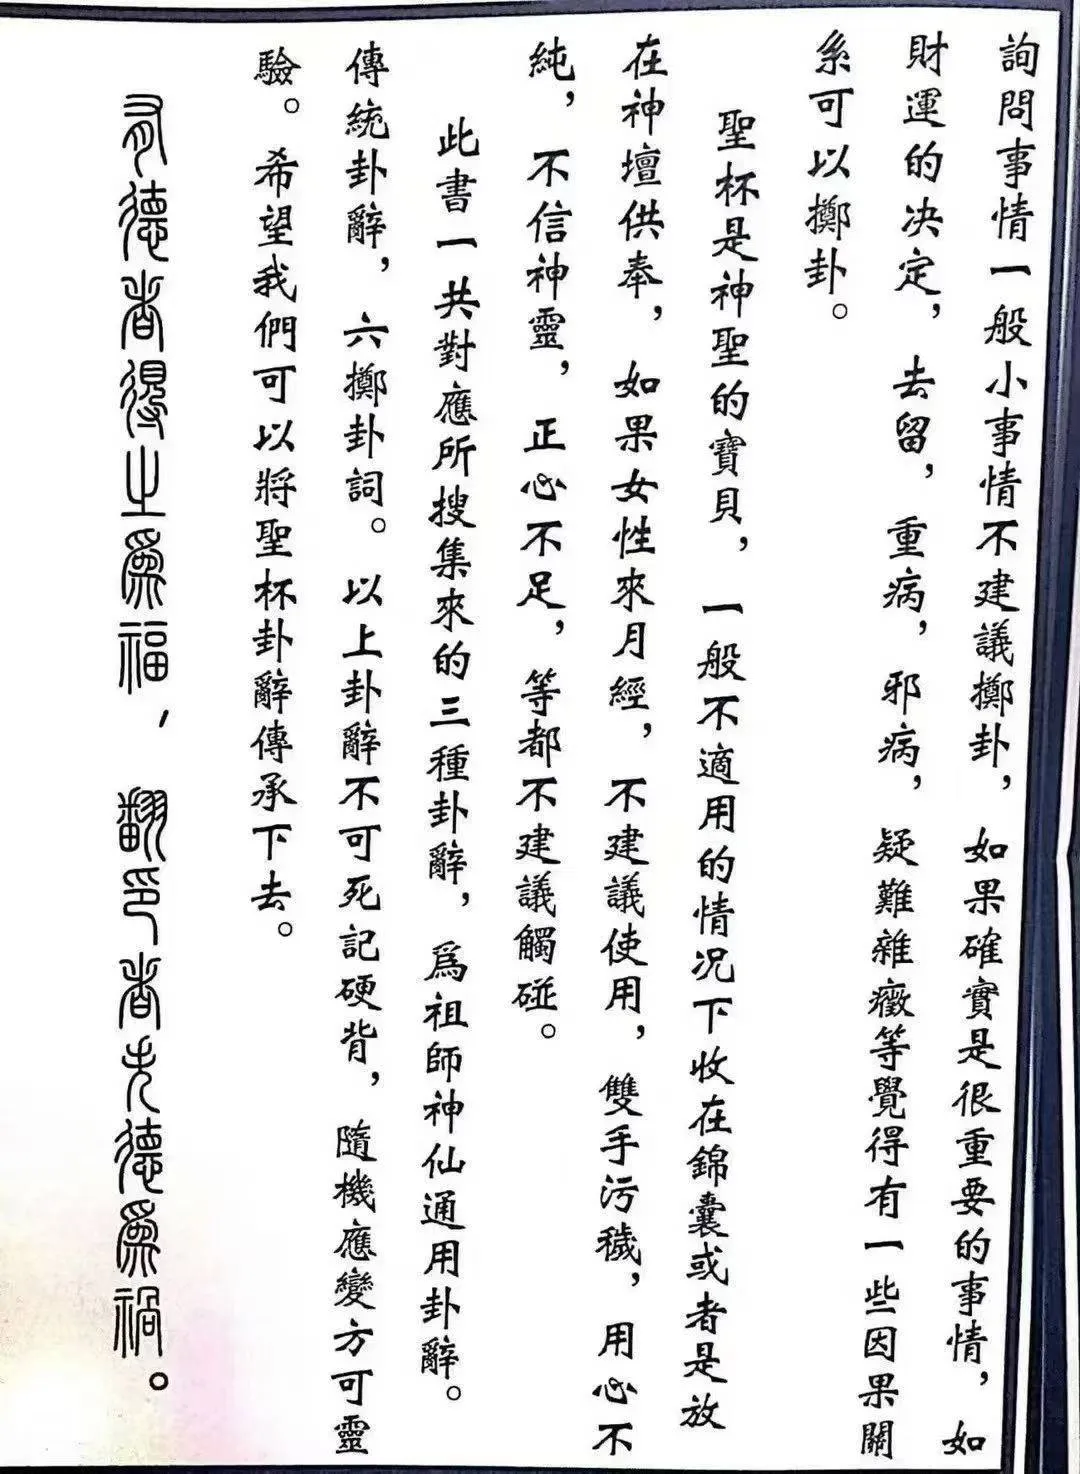 詢問事情一般小事情不建議擲卦，如果確實是很重要的事情，如
財運的决定，去留，重病，邪病，疑難雜癥等覺得有一些因果關
系可以擲卦。
聖杯是神聖的寶貝，一般不適用的情况下收在錦囊或者是放
在神壇供奉，如果女性來月經，不建議使用，雙手污穢，用心不
純，不信神靈，正心不足，等都不建議觸碰。
此書一共對應所搜集來的三種卦辭，爲祖師神仙通用卦辭。
傳統卦辭，六擲卦詞。以上卦辭不可死記硬背，隨機應變方可靈
驗。希望我們可以將聖杯卦辭傳承下去。
有德者得之爲福，翻印者失德爲禍。